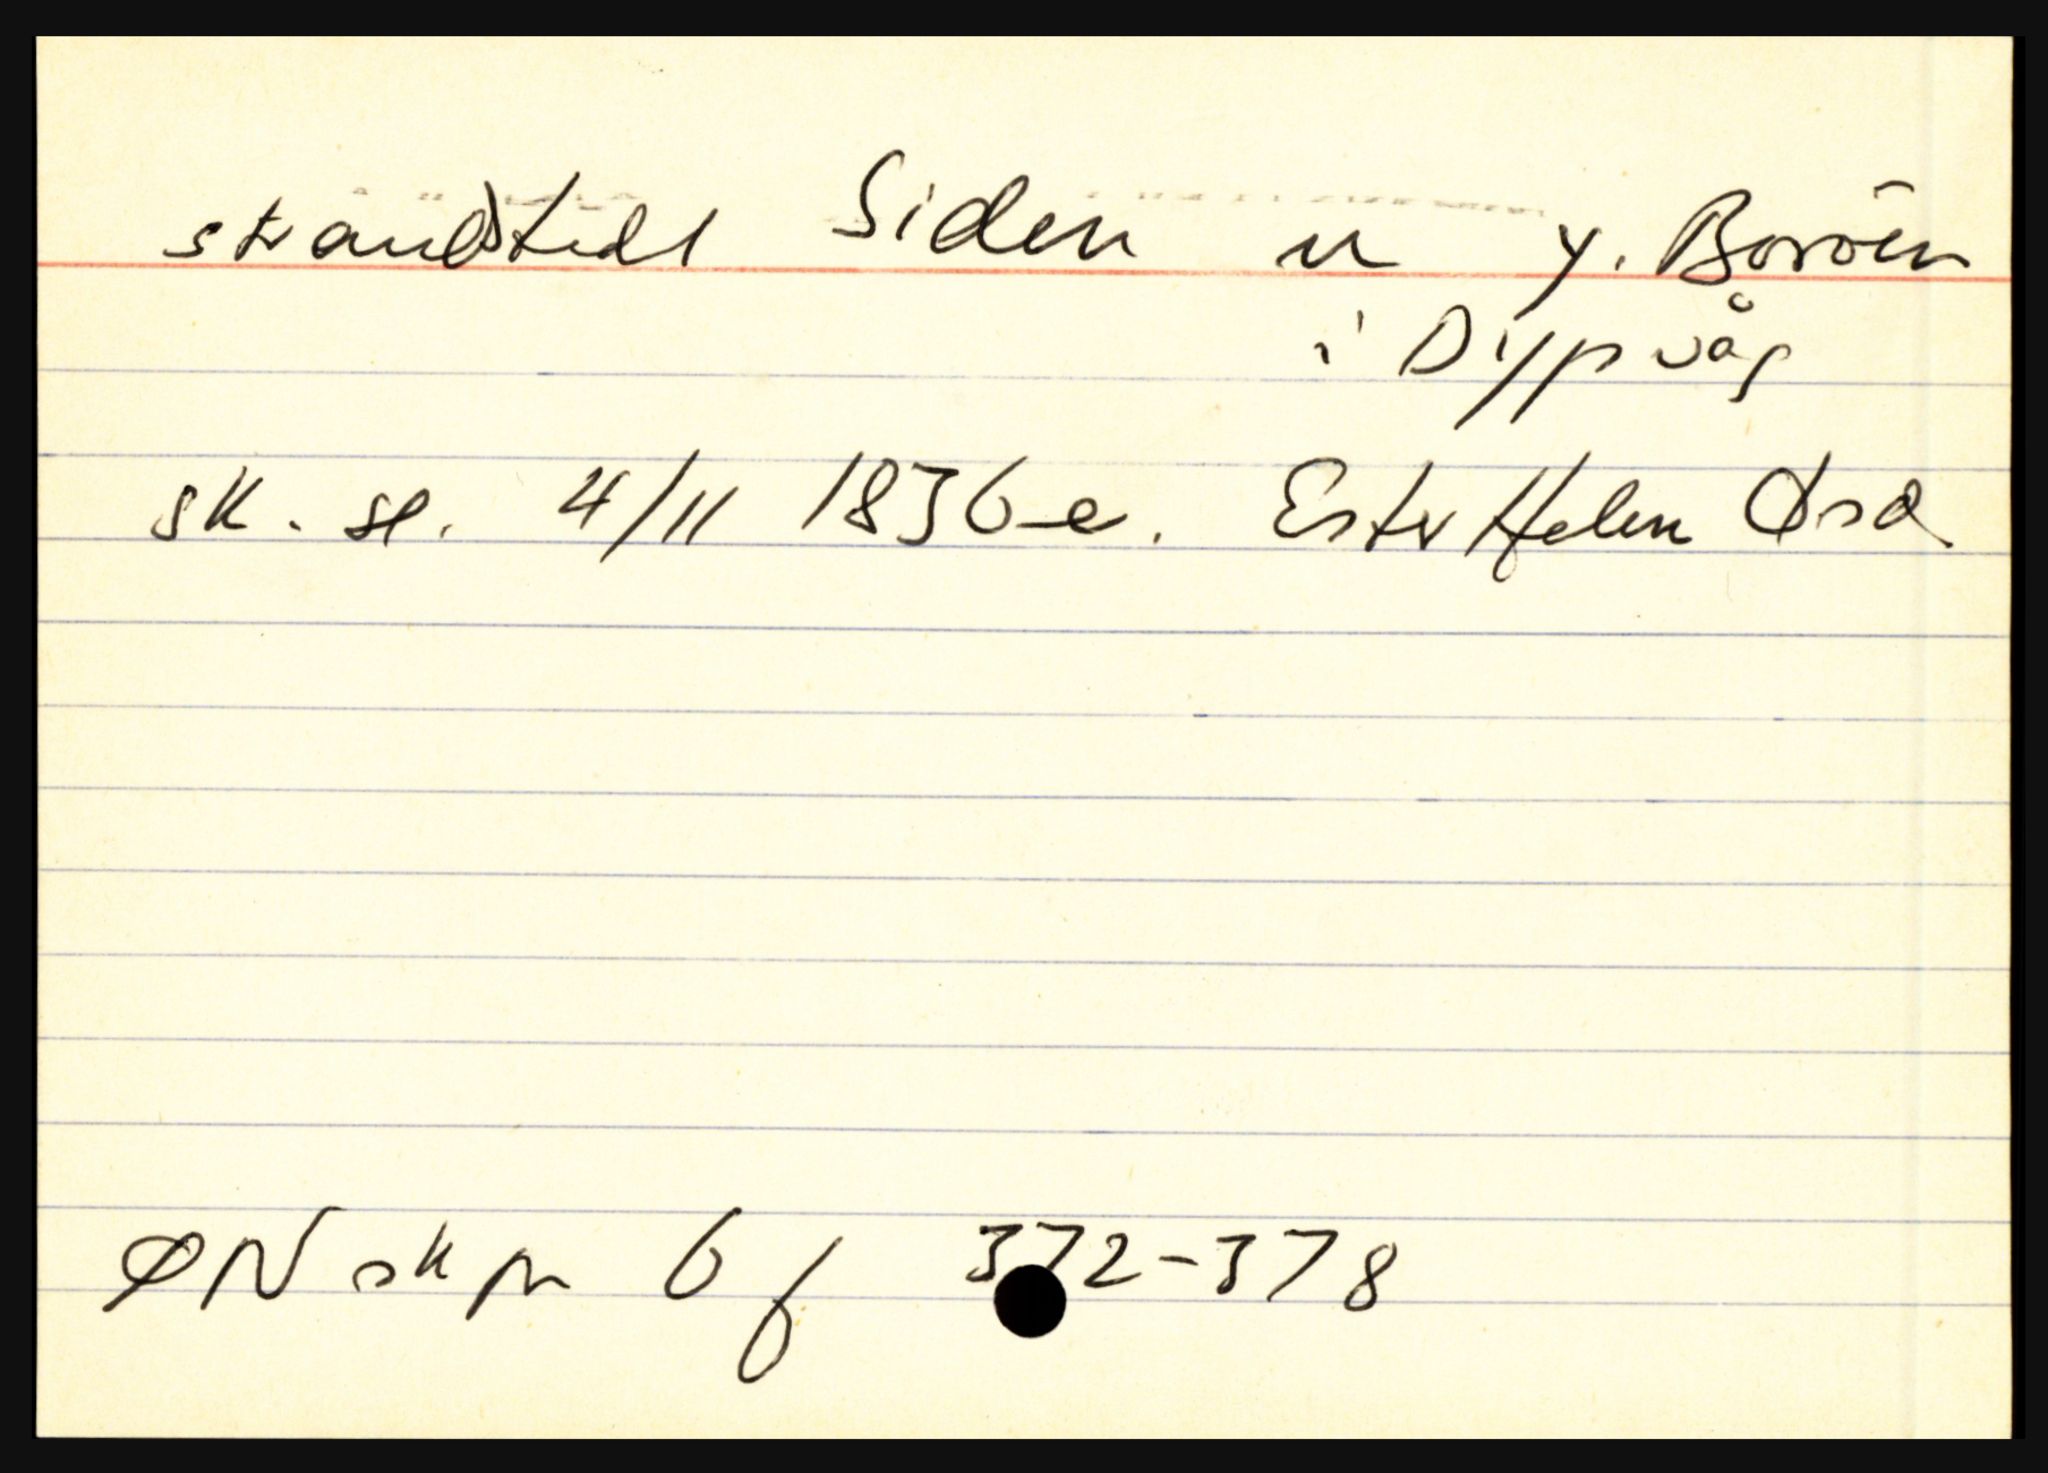 strandstedt Siden u y. Boröen
i Dypvåg
sk. se. 4/11 1836 e. Ester Helen Ø s d
ØN sk pr 6 f 372-378